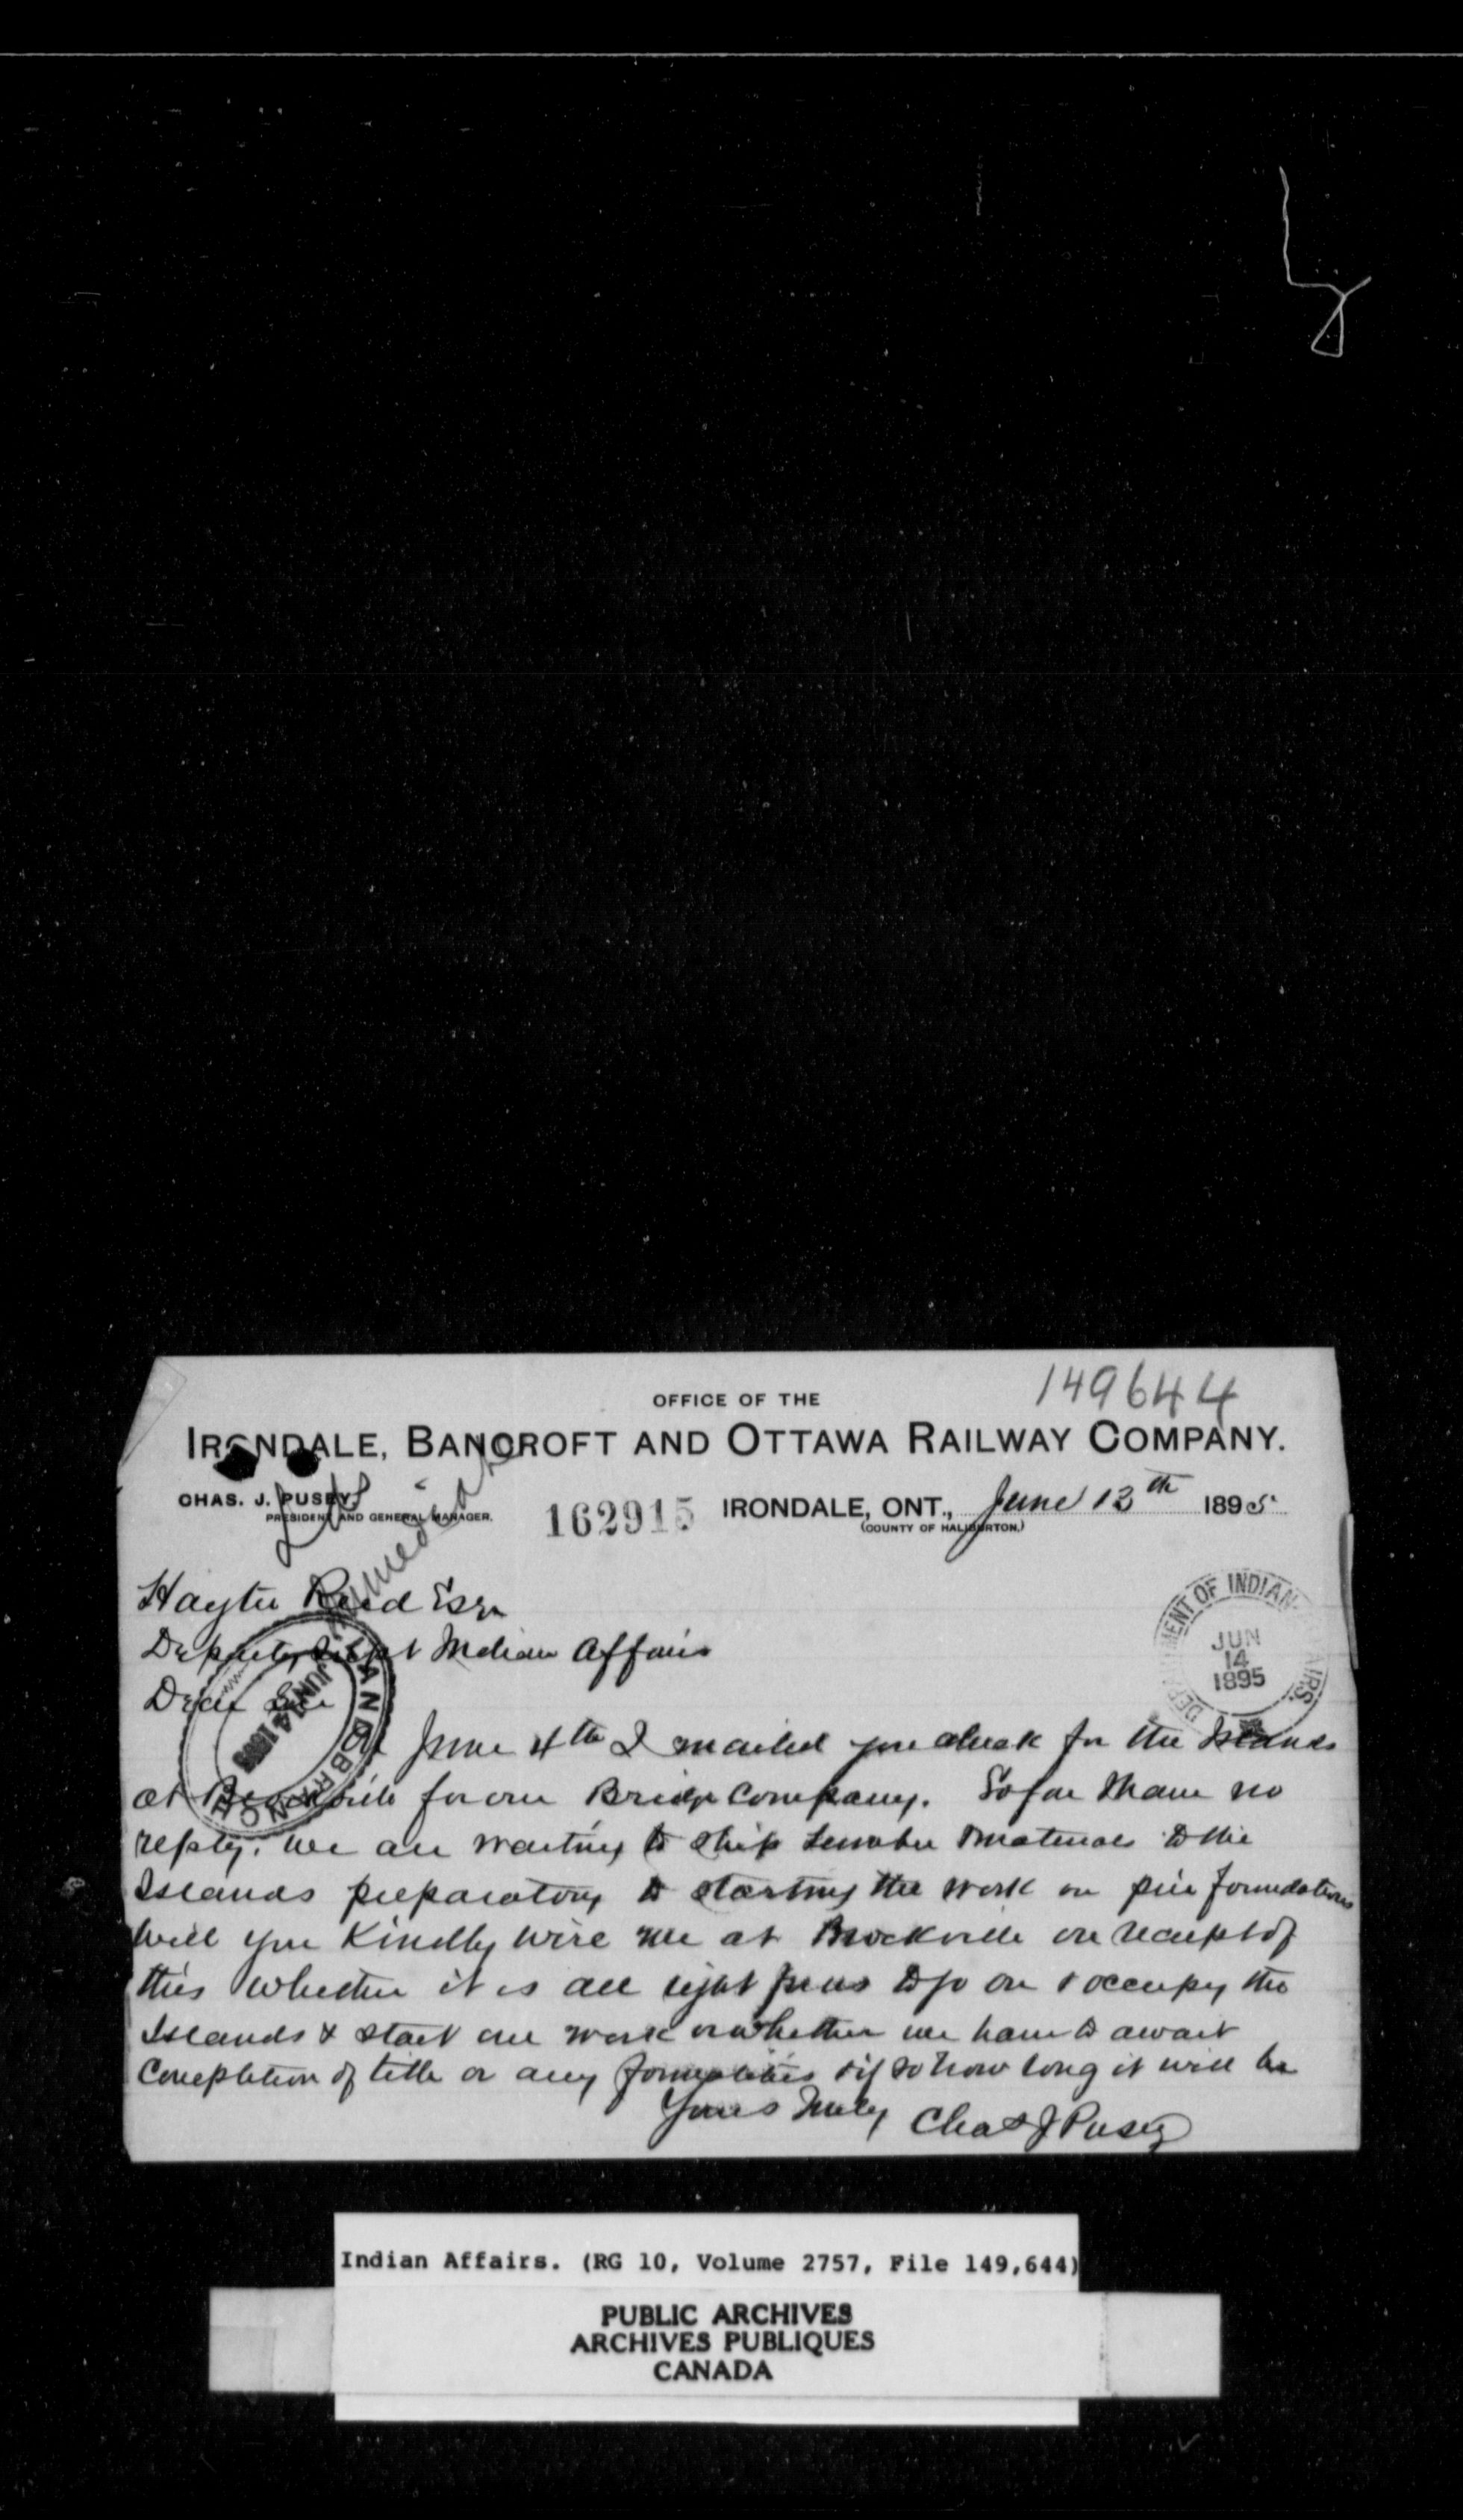 149644
OFFICE OF THE
IRONDALE, BANCROFT AND OTTAWA RAILWAY COMPANY.
CHAS. J. PUSEY,
PRESIDENT AND GENERAL MANAGER.
162915 IRONDALE, ONT., June 13th 1895
(COUNTY OF HALIBURTON.)
Immediate
Hayter Reed Esqr
Deputy Supt Indian Affairs
Dear Sir
DEPARTMENT OF INDIAN AFFAIRS
JUN
14
1895
LAND BRANCH
JUN 14 1895
June 4th I mailed you check for the Islands
at Brockville for our Bridge Company. So far I have no
reply. We are wanting to ship Lumber & materials to the
Islands preparatory to starting the work on pier foundations
Will you Kindly wire me at Brockville on receipt of
this whether it is all right for us to go on & occupy the
Islands & start our work or whether we have to await
Completion of title or any formalities & if so how long it will be
Yours Truly Chas J Pusey
Indian Affairs. (RG 10, Volume 2757, File 149,644)
PUBLIC ARCHIVES
ARCHIVES PUBLIQUES
CANADA